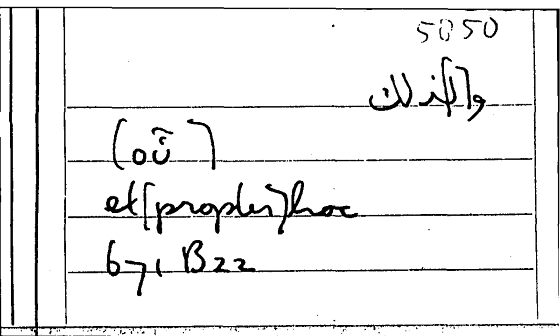 5050
و[لذلك]
(οὗ)
et [propter] hoc
671 B22